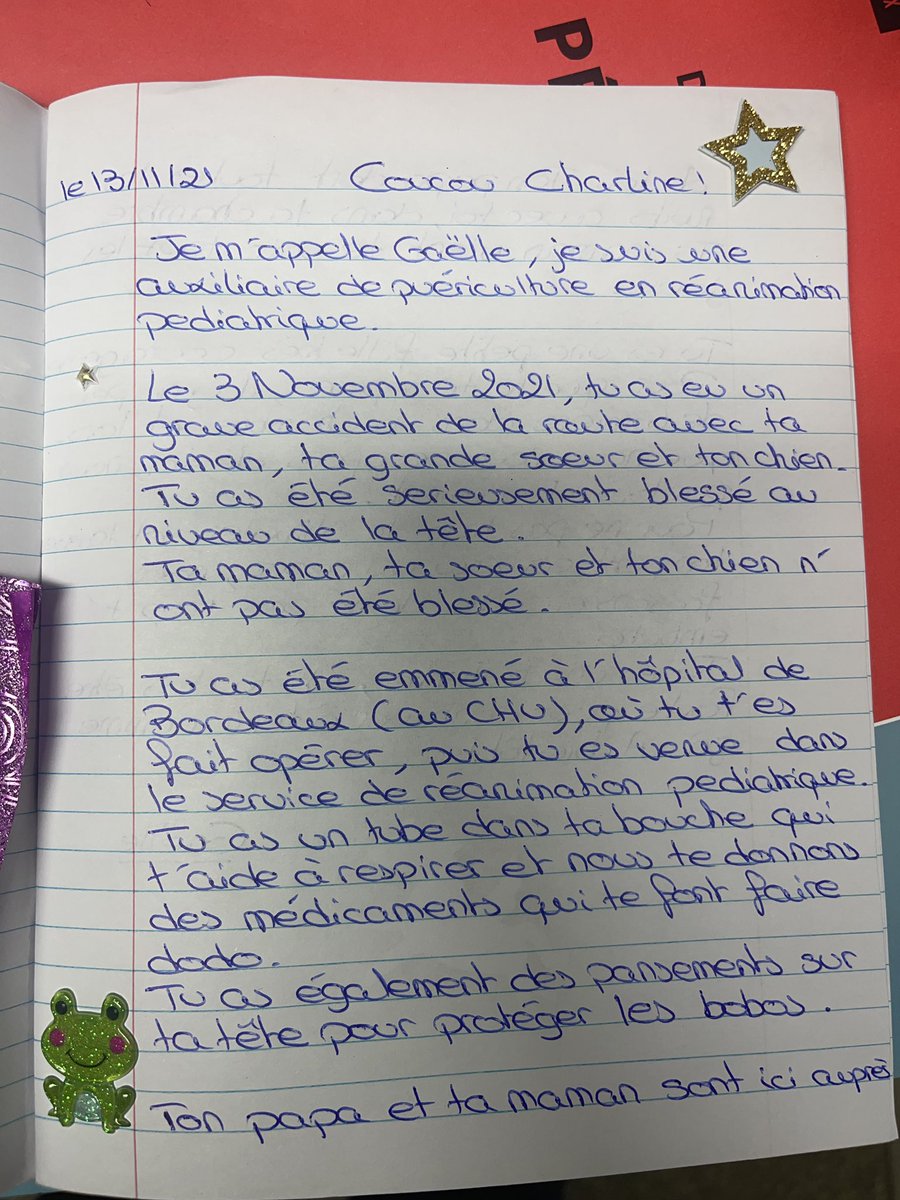 PÉ
le 13/11/21 Coucou Charline!
Je m'appelle Gaëlle, je suis une
auxiliaire de puériculture en réanimation
pediatrique.
Le 3 Novembre 2021, tu as eu un
grave accident de la route avec ta
maman, ta grande soeur et ton chien.
Tu as été serieusement blessé au
niveau de la tête.
Ta maman, ta soeur et ton chien n'
ont pas été blessé.
Tu as été emmené à l'hôpital de
Bordeaux (au CHU), où tu t'es
fait opérer, puis tu es venue dans
le service de réanimation pediatrique.
Tu as un tube dans ta bouche qui
t'aide à respirer et nous te donnons
des médicaments qui te font faire
dodo.
Tu as également des pansements sur
ta tête pour protéger les bobos.
Ton papa et ta maman sont ici auprès